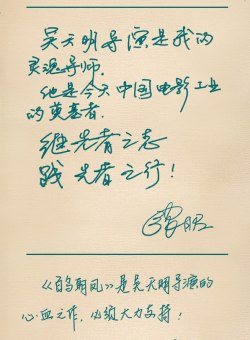 吴天明导演是我的
灵魂导师.
他是今天中国电影工业
的奠基者.
继先者之志
践先者之行!
《百鸟朝凤》是吴天明导演的
心血之作,必须大力支持!